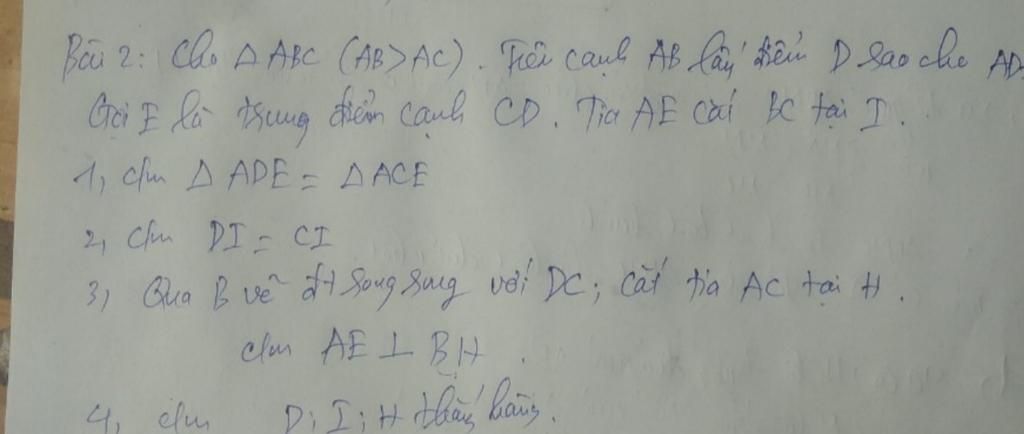 Bài 2: Cho △ ABC (AB>AC). Trên cạnh AB lấy điểm D sao cho AD
Gọi E là trung điểm cạnh CD. Tia AE cắt BC tại I.
1, c/m △ ADE = △ ACE
2, c/m DI = CI
3, Qua B vẽ đt song song với DC; cắt tia AC tại H.
c/m AE ⊥ BH.
4, c/m D; I; H thẳng hàng.